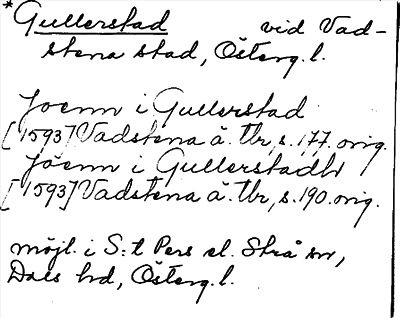 *Gullerstad vid Vad-
stena stad, Österg.l.
Joenn i Gullerstad
[1593] Vadstena ä. tbr, s. 177. orig.
Jöenn i Gullerstadh
[1593] Vadstena ä. tbr, s. 190. orig.
möjl. i S:t Pers el. Strå sn,
Dals hd, Österg.l.